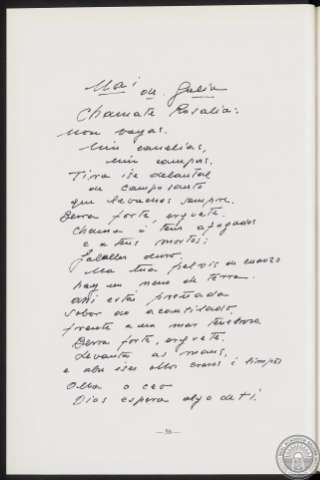 Mai
ou Galia
Chamate Rosalia:
Non vayas.
Nin camelias,
nin campas.
Tira ise delantal
ou camposanto
que levaches sempre.
Berra forte, erguete.
Chama ô teus afogados
e a teus mortos:
Fállalles duro.
Na tua pelvis ou
hay un neno de terra.
ahi está preñada
sobor da
frente a un mar tenebroso
Berra forte, erguete.
Levanta as mans,
e abre ises ollos craros i limpos
Olla o ceo
Dios espera algo de ti.
— 56 —